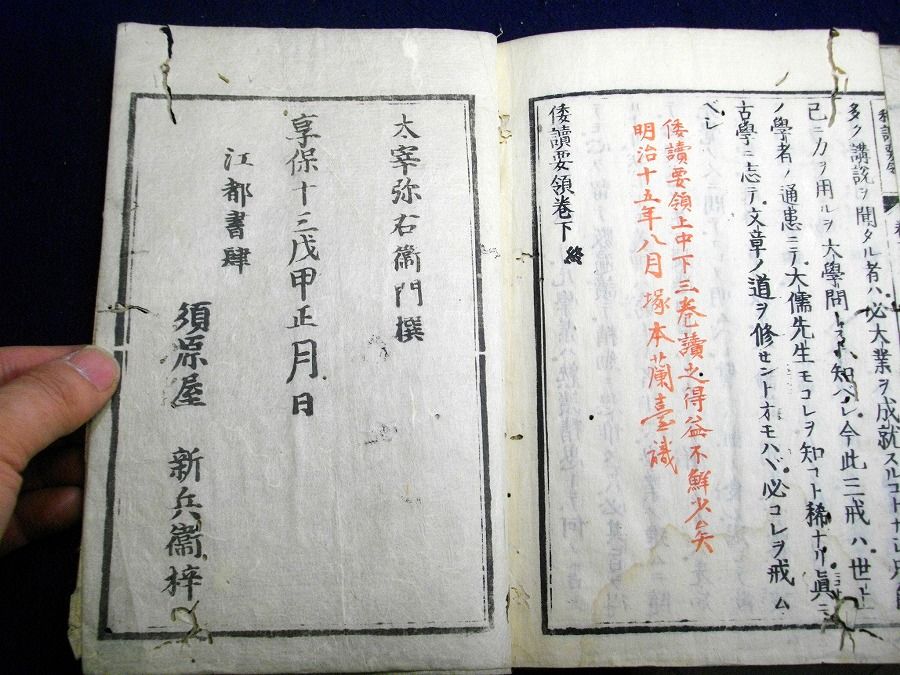 多ク講説ヲ聞タル者ハ必大業ヲ成就スルコト
己ニ力ヲ用ルヲ大學問トス知ベシ今此三戒ハ世上
ノ學者ノ通患ニテ大儒先生モコレヲ知コト稀ナリ眞ニ
古學ニ志テ文章ノ道ヲ修セントオモハヾ必コレヲ戒ム
ベシ
倭讀要領上中下三卷讀之得益不鮮少矣
明治十五年八月 塚本蘭臺識
倭讀要領卷下 終
太宰弥右衞門撰
享保十三戊申正月日
江都書肆
須原屋 新兵衞梓